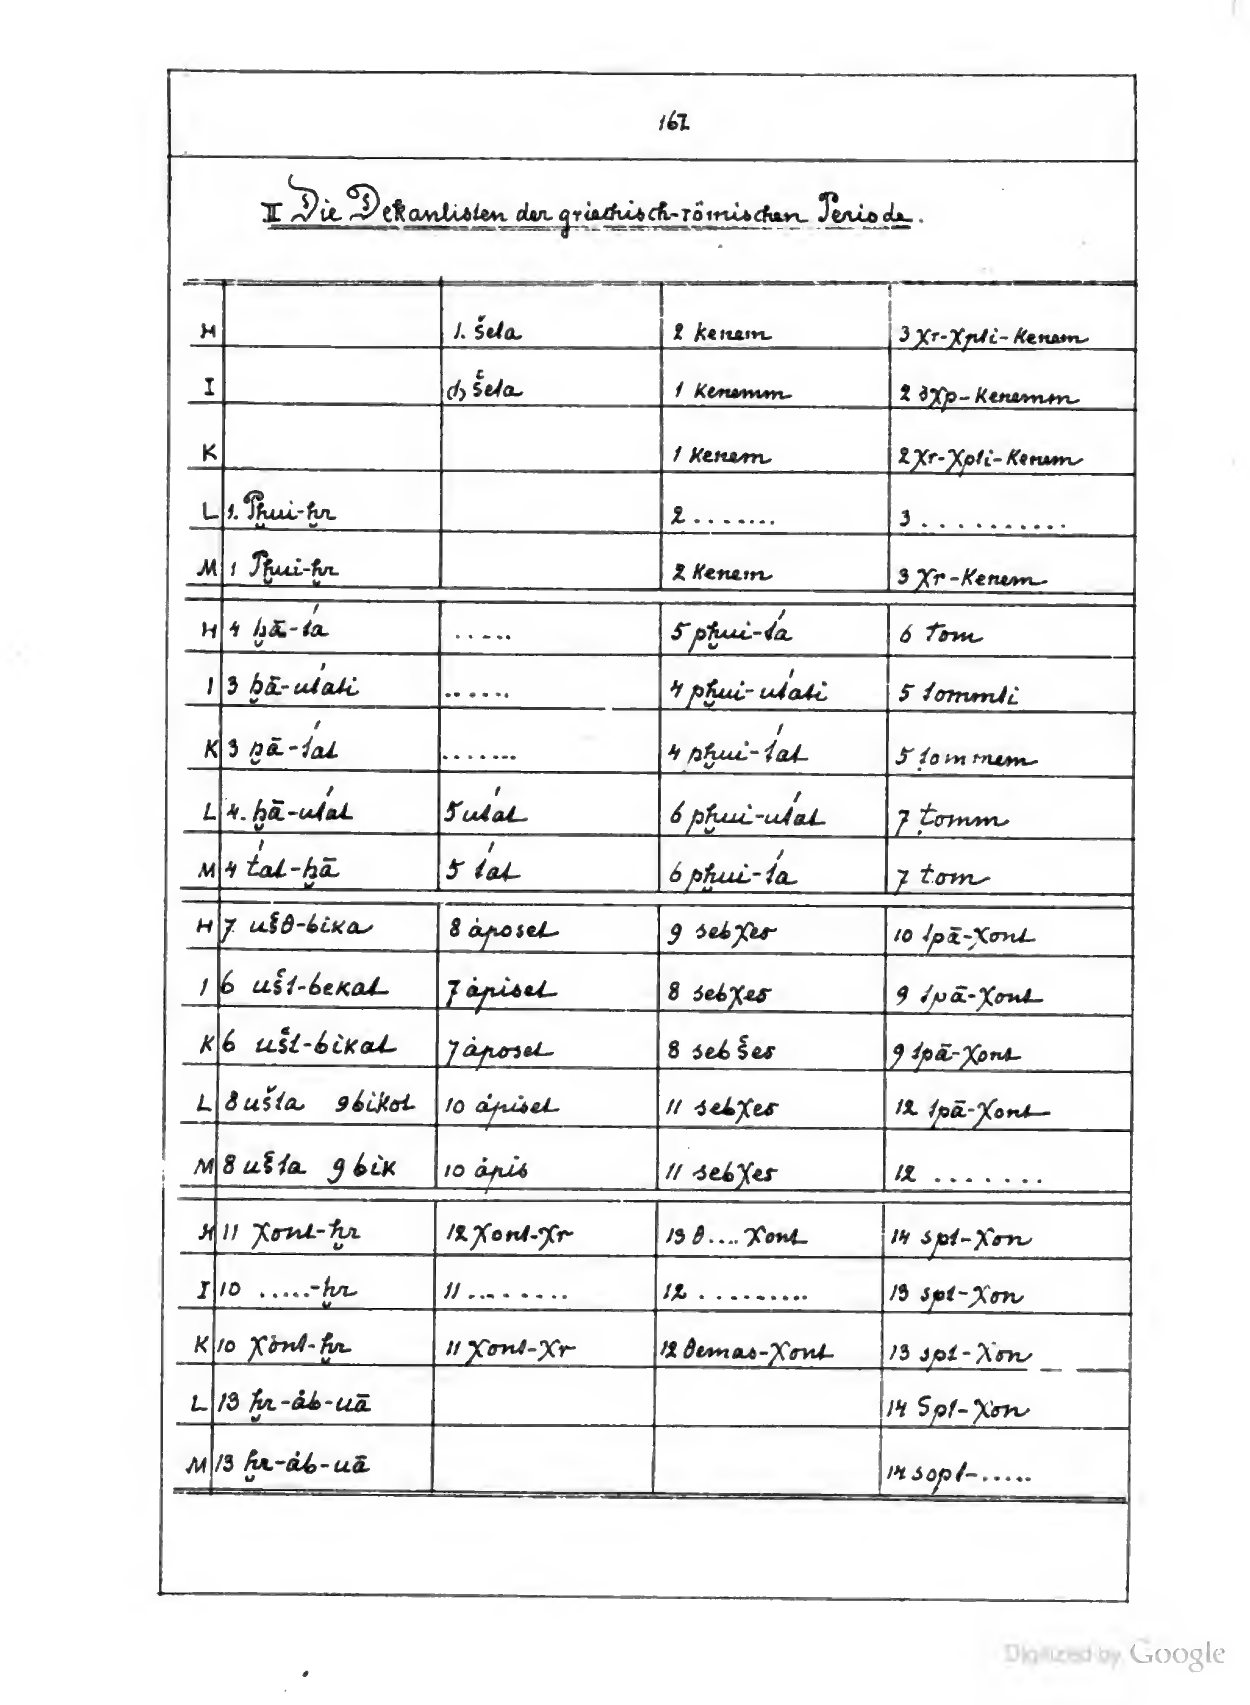 162
II Die Dekanlisten der griechisch-römischen Periode.
H 1. šeta 2 kenem 3 χr-χpti-kenem
I (1) šeta 1 kenemm 2 3χp-kenemm
K 1 kenem 2 χr-χpti-kenem
L 1. Pḫui-ḫr 2 ....... 3 ..........
M 1 Pḫui-ḫr 2 Kenem 3 χr-Kenem
H 4 ḫā-t́a ..... 5 pḫui-t́a 6 tom
I 3 ḫā-ut́ati ...... 4 pḫui-ut́ati 5 tommti
K 3 ḫā-t́at ....... 4 pḫui-t́at 5 ṭommem
L 4. ḫā-ut́at 5 ut́at 6 pḫui-ut́at 7 ṭomm
M 4 t́at-ḫā 5 t́at 6 pḫui-t́a 7 tom
H 7 ušθ-bika 8 áposet 9 sebχes 10 tpā-χont
I 6 ušt-bekat 7 ápiset 8 sebχes 9 tpā-χont
K 6 ušt-bikat 7 áposet 8 sebšes 9 tpā-χont
L 8 ušta 9 bikot 10 ápiset 11 sebχes 12 tpā-χont
M 8 ušta 9 bik 10 ápis 11 sebχes 12 .......
H 11 χont-ḫr 12 χont-χr 13 θ.... χont 14 spt-χon
I 10 .....-ḫr 11 ........ 12 ......... 13 spt-χon
K 10 χont-ḫr 11 χont-χr 12 θemas-χont 13 spt-χon
L 13 ḫr-áb-uā 14 Spt-χon
M 13 ḫr-áb-uā 14 sopt-.....
Digitized by Google